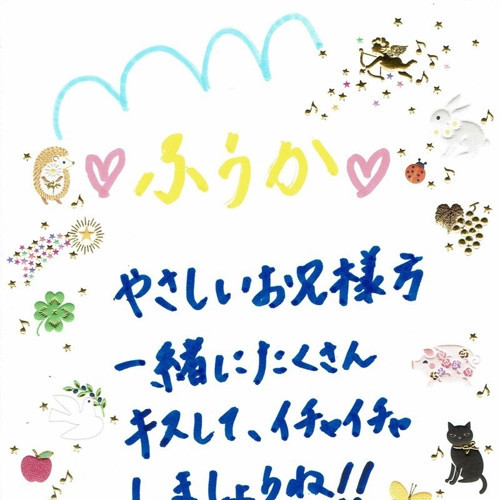 ♡ふうか♡
やさしいお兄様方
一緒にたくさん
キスして、イチャイチャ
しましょうね!!